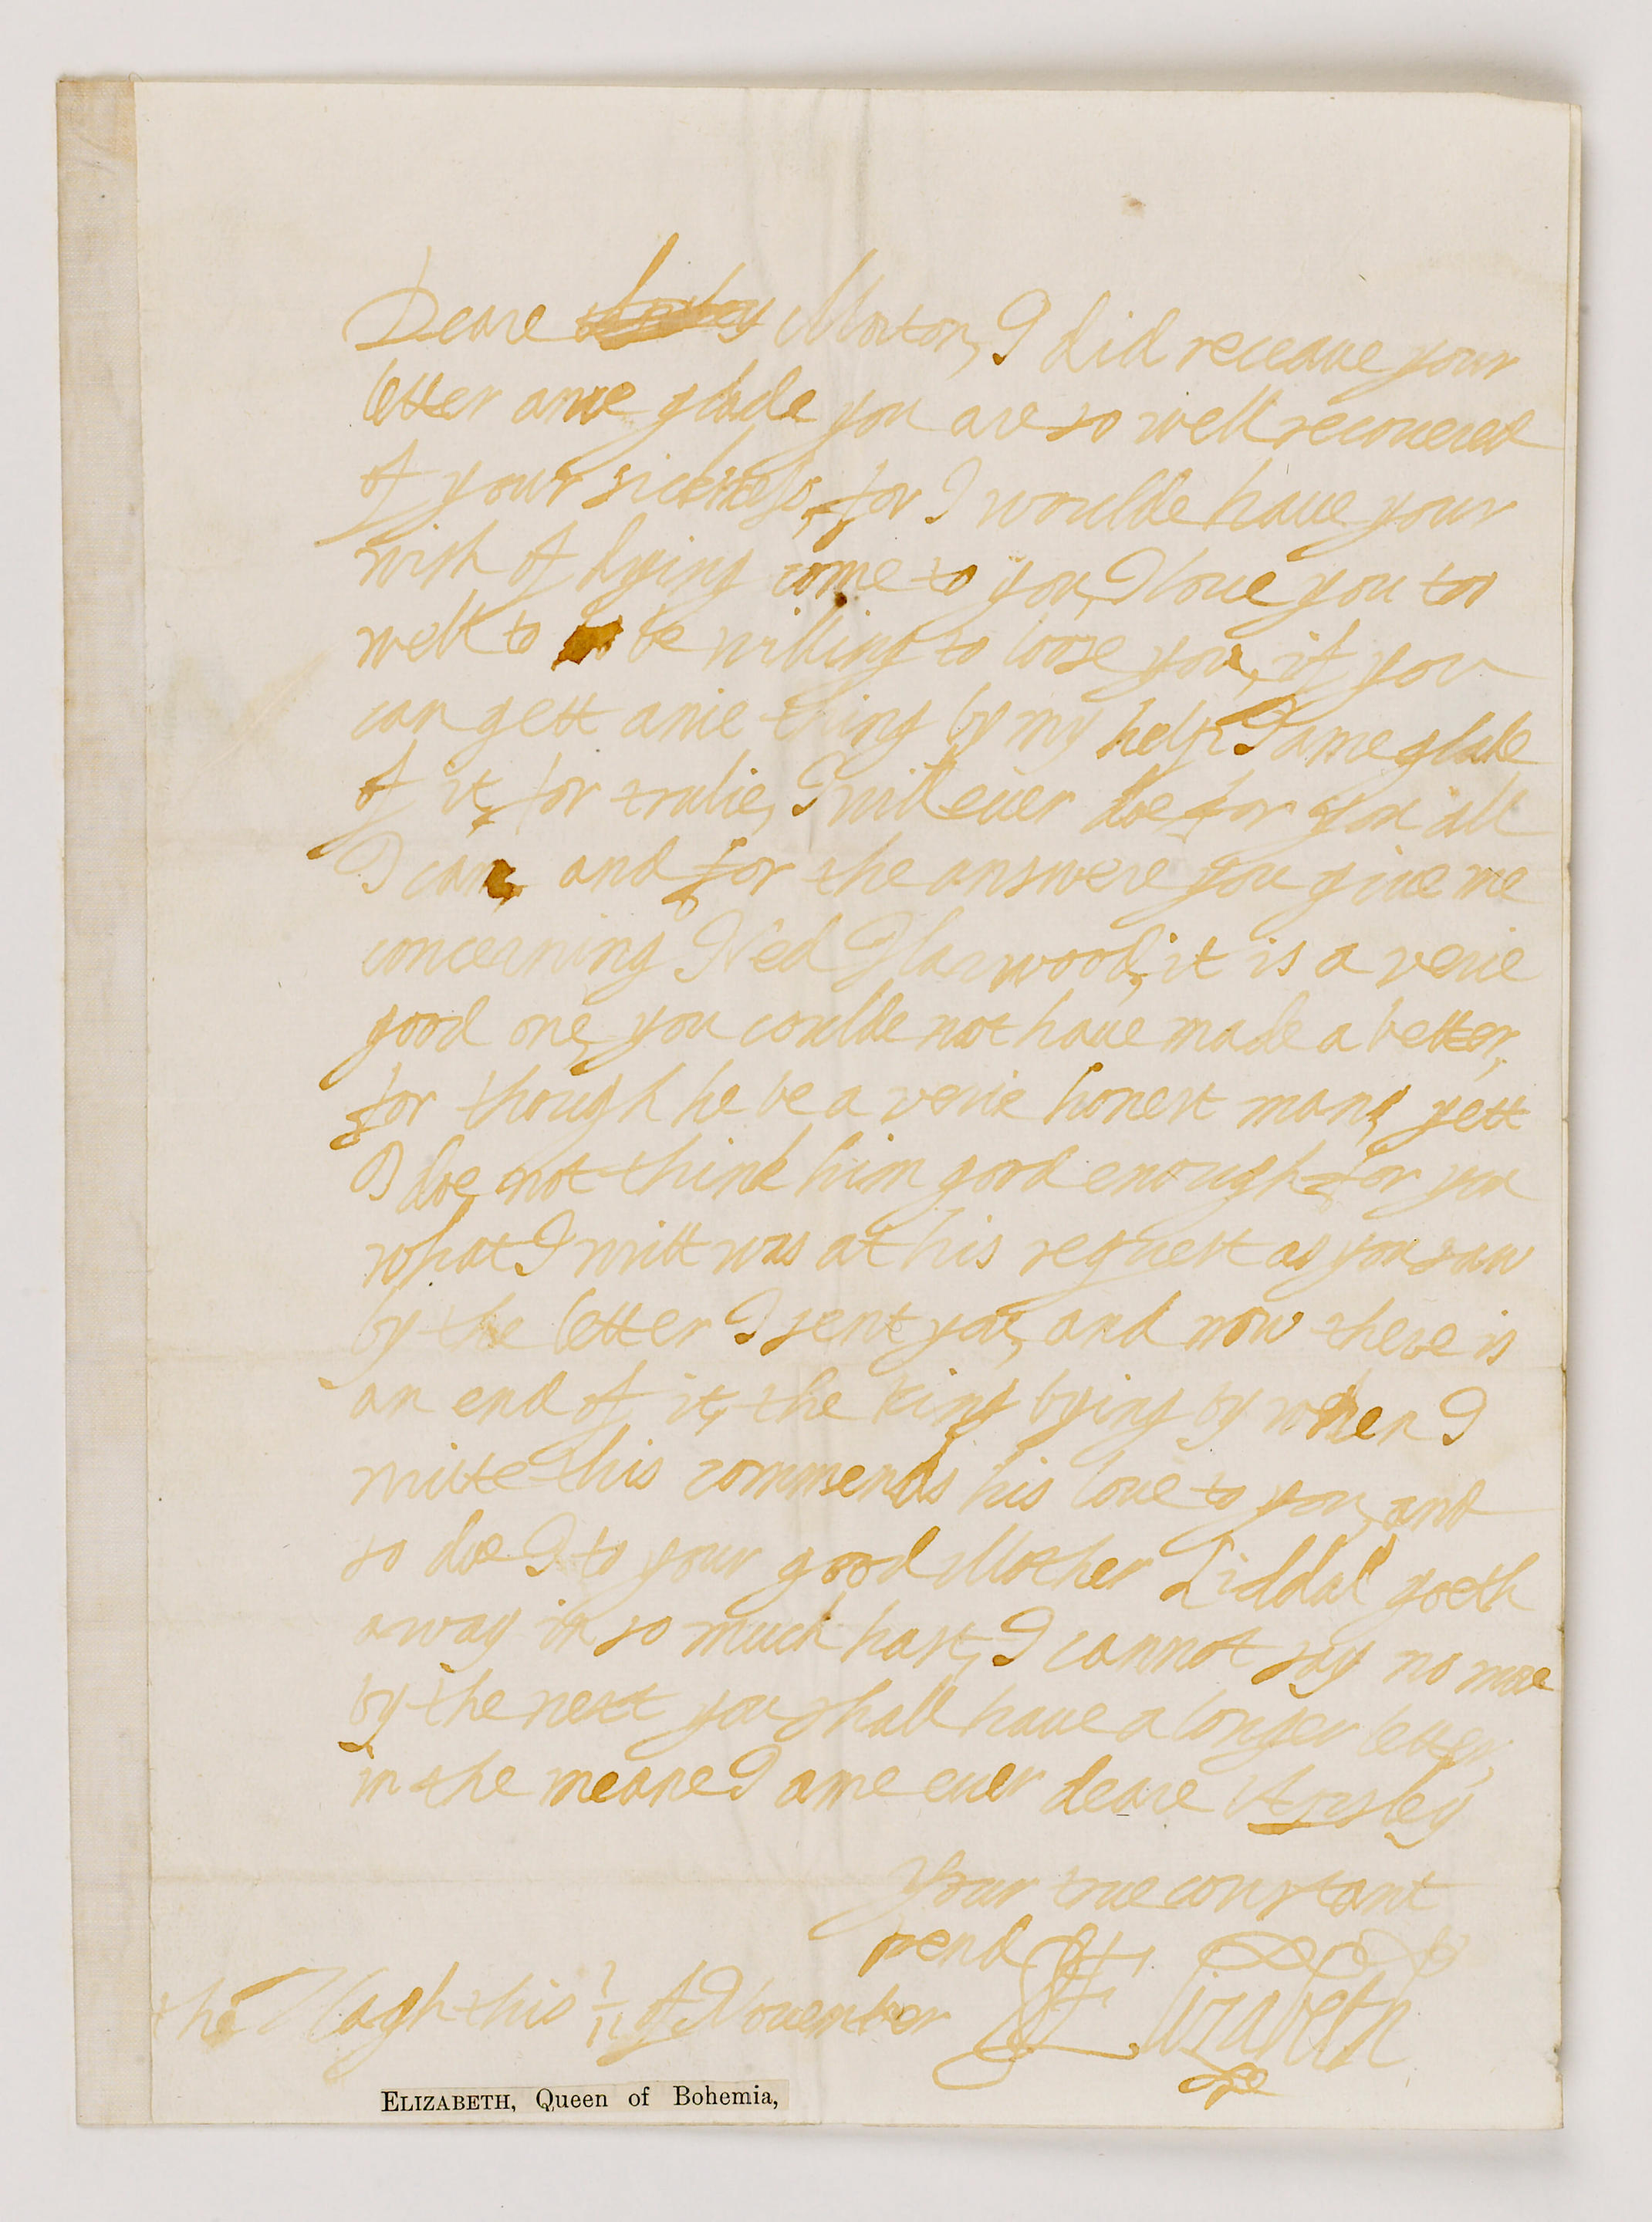 Deare Morton, I did receaue your
letter ame glade you are so well recouered
of your sickness, for I woulde haue your
wish of dying come to you, I loue you too
well to be willing to loose you, if you
can gett anie thing by my help I ame glade
of it, for trulie, I will euer doe for you all
I can, and for the answere you giue me
concerning Ned Harwood, it is a verie
good one, you coulde not haue made a better,
for though he be a verie honest man, yett
I doe not think him good enough for you
what I writt was at his request as you saw
by the letter I sent you, and now there is
an end of it, the king bying by when I
write this commends his loue to you, and
so doe I to your good Mother Liddal goeth
away in so much hast, I cannot say no more
by the next you shall haue a longer letter,
in the meane I ame euer deare
Your true constant
frend
Elizabeth
the Hagh this 1/11 of Nouember
ELIZABETH, Queen of Bohemia,